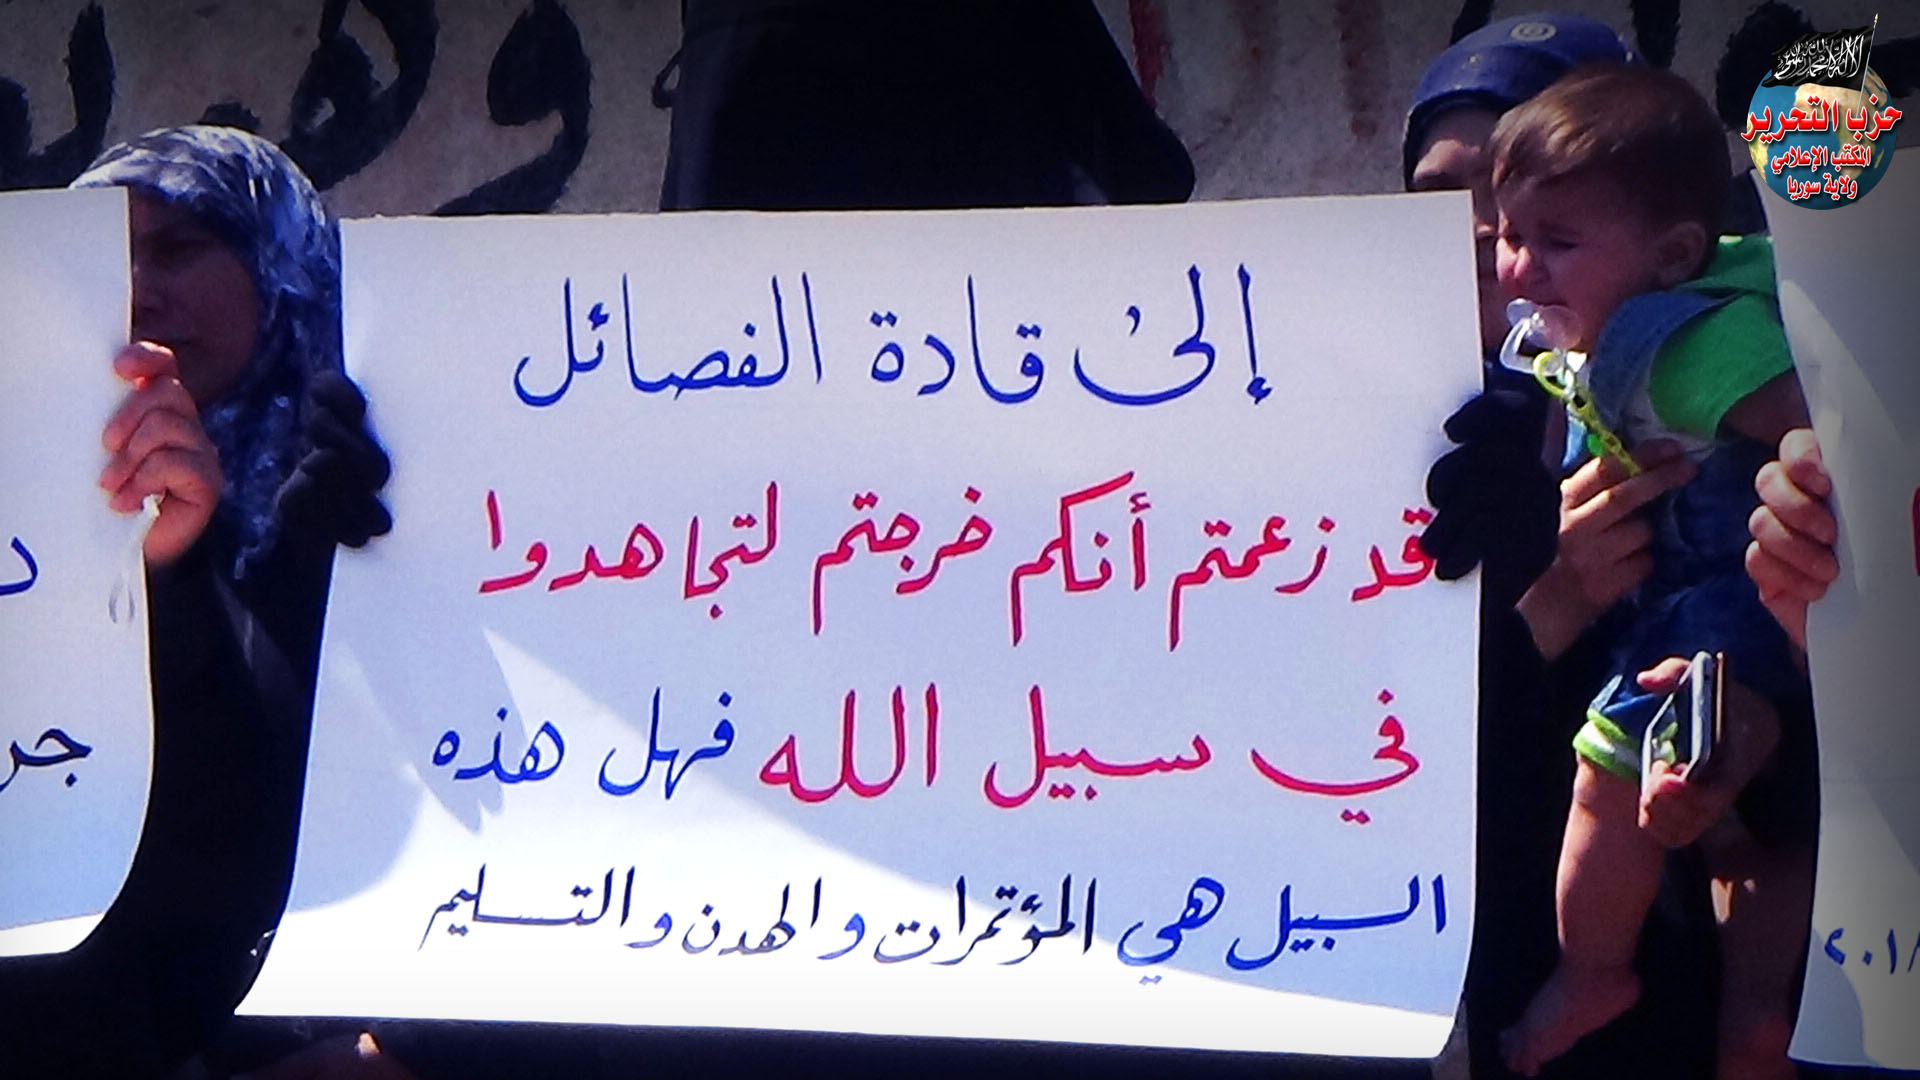 حزب التحرير
المكتب الإعلامي
ولاية سوريا
إلى قادة الفصائل
قد زعمتم أنكم خرجتم لتجاهدوا
في سبيل الله فهل هذه
السبيل هي المؤتمرات والهدن والتسليم
د
جر
٢٠١